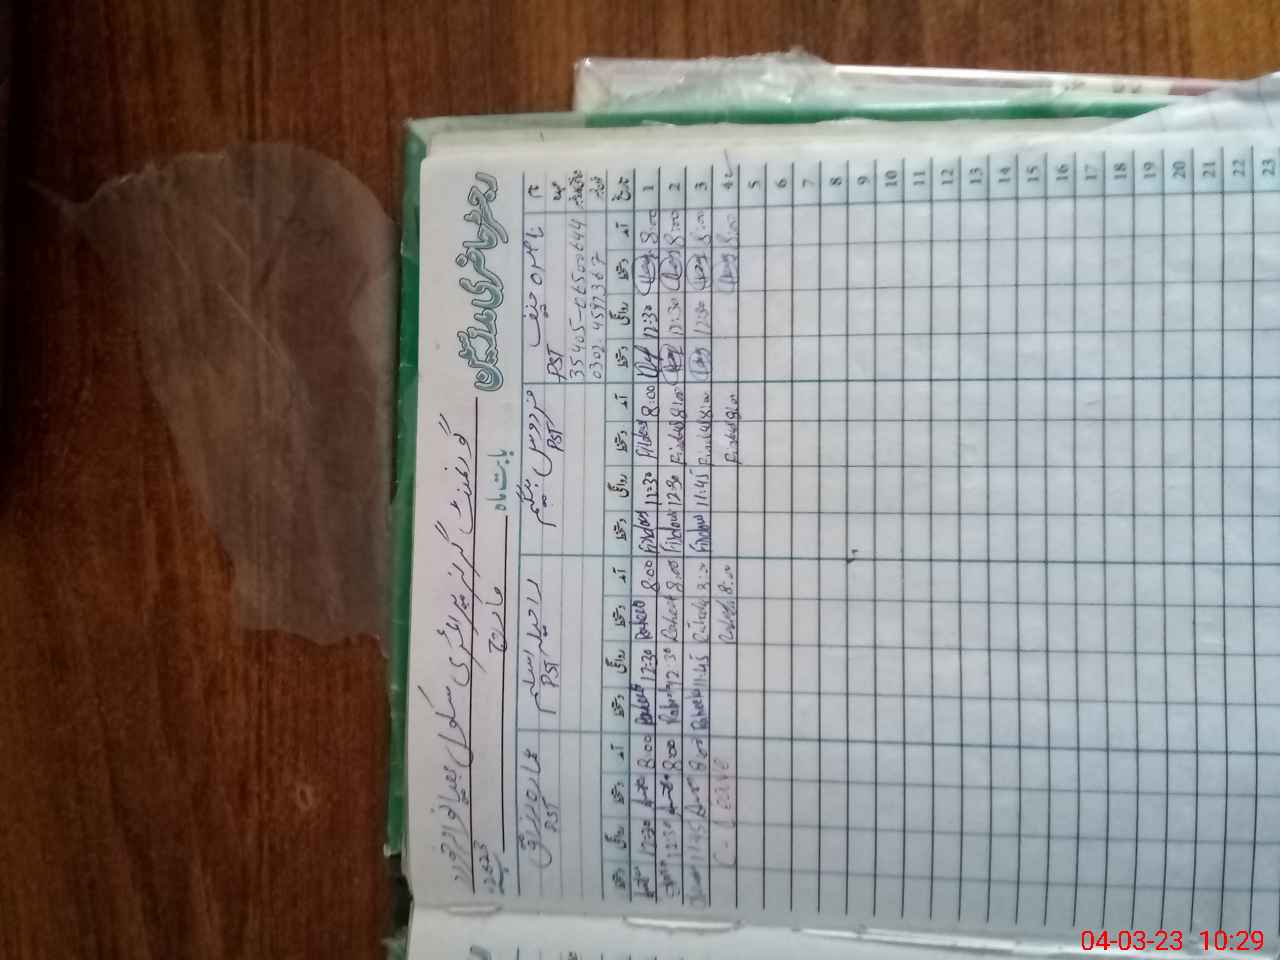 رجسٹر حاضری مدرسین
گورنمنٹ گرلز پرائمری سکول
بابت ماہ مارچ
نام
ناصرہ حنیف
فردوس بیگم
راحیلہ اسلم
عہدہ PST PST PST PST
35405-06500644
0302-4597367
تاریخ آمد دستخط روانگی دستخط آمد دستخط روانگی دستخط آمد دستخط روانگی دستخط آمد دستخط روانگی دستخط
1 8:00 12:30 8:00 Firdous 12:30 Firdous 8:00 Raheela 12:30 Raheela 8:00 12:30
2 8:00 12:30 8:00 Firdous 12:30 Firdous 8:00 Raheela 12:30 Raheela 8:00 12:30
3 8:00 8:00 Firdous 11:45 Firdous 8:00 Raheela 11:45 Raheela 8:00 11:45
4 8:00 8:00 Firdous 8:00 Raheela C-Leave
5
6
7
8
9
10
11
12
13
14
15
16
17
18
19
20
21
22
23
04-03-23 10:29